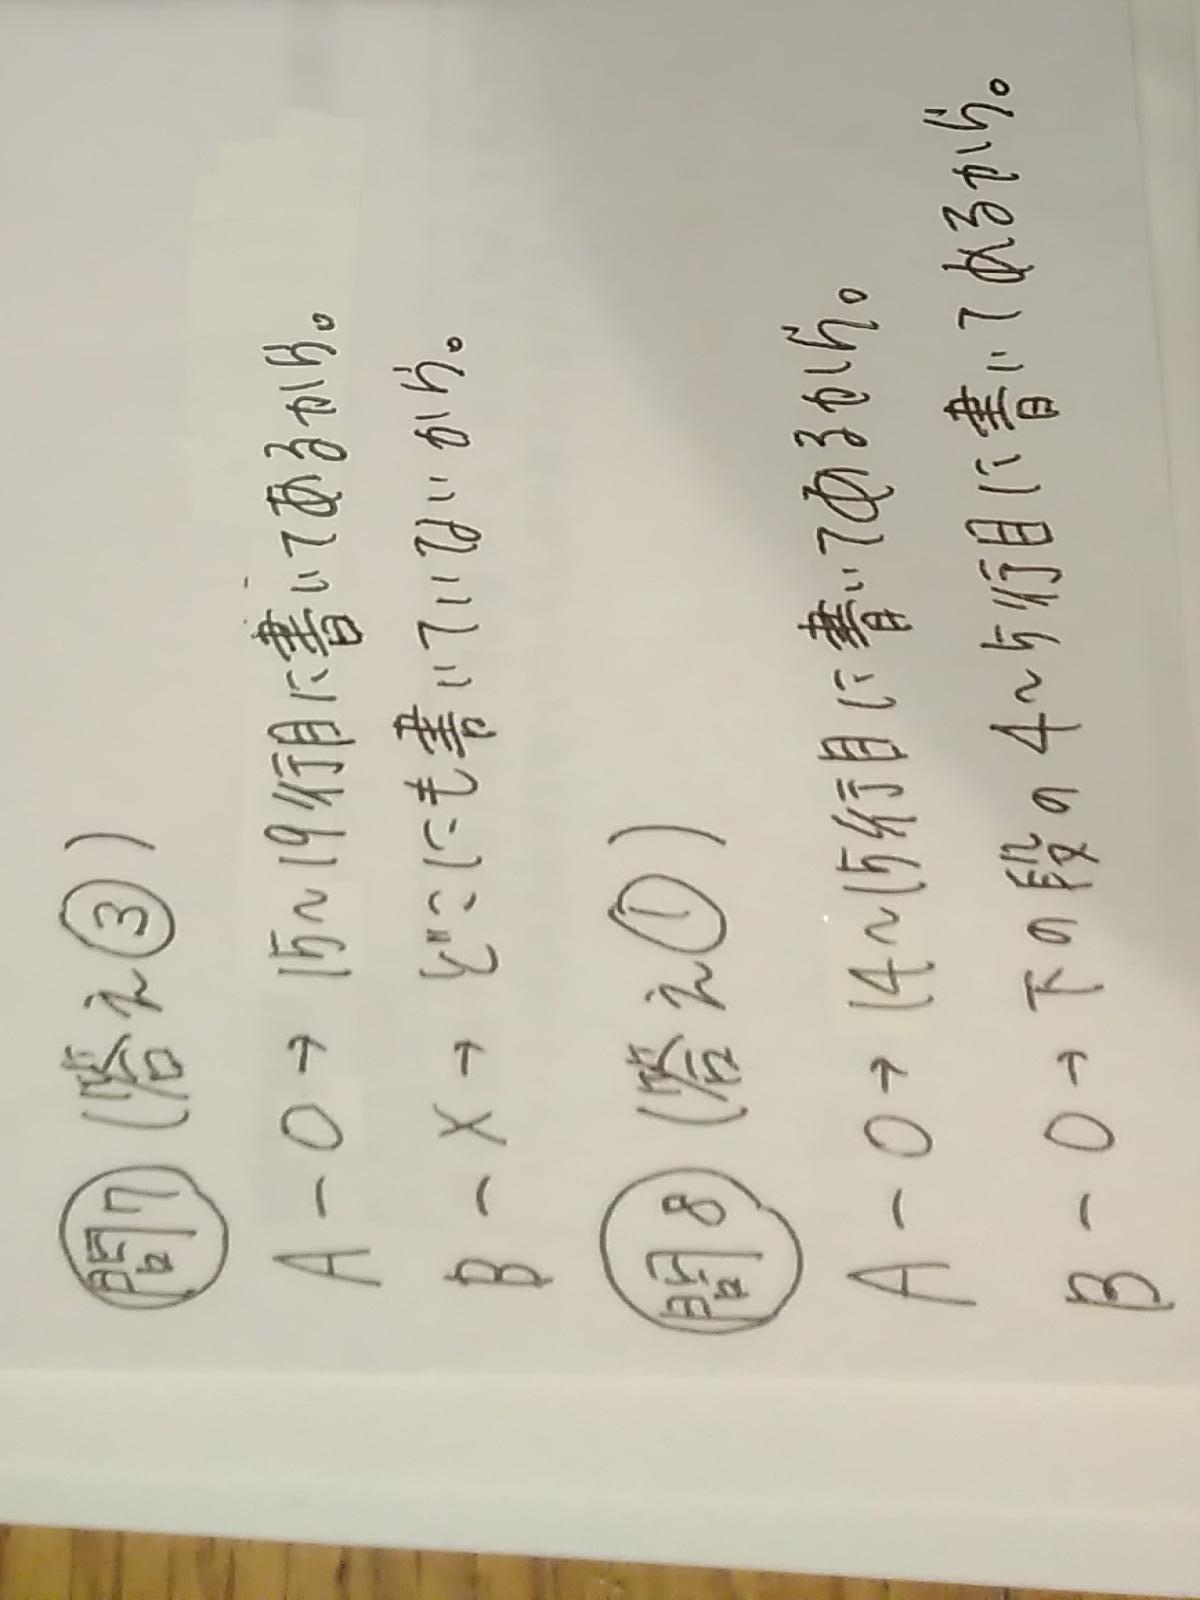 問7 (答え③)
A－○→15～19行目に書いてあるから。
B－×→どこにも書いていないから。
問8 (答え①)
A－○→14～15行目に書いてあるから。
B－○→下の段の4～5行目に書いてあるから。